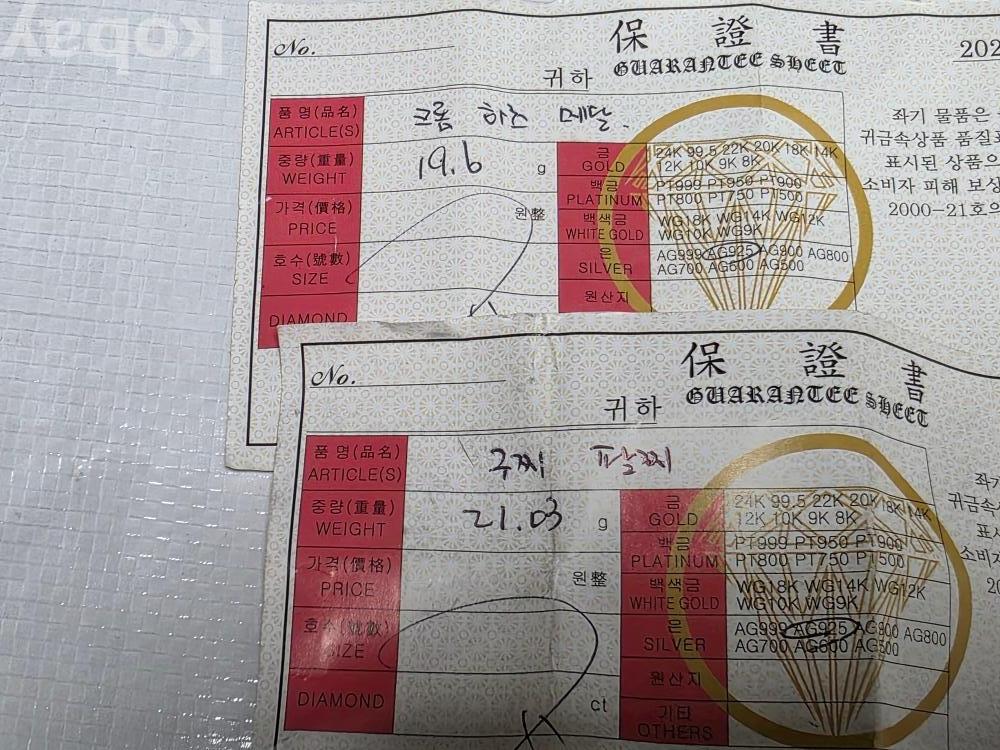 Kopay
No.
保 證 書
GUARANTEE SHEET
202
귀하
품 명(品名)
ARTICLE(S)
크롬 하츠 메달.
중량(重量)
WEIGHT
19.6 g
가격(價格)
PRICE
원整
호수(號數)
SIZE
DIAMOND
금
GOLD
24K 99.5 22K 20K 18K 14K
12K 10K 9K 8K
백금
PLATINUM
PT999 PT950 PT900
PT800 PT750 PT500
백색금
WHITE GOLD
WG18K WG14K WG12K
WG10K WG9K
은
SILVER
AG999 AG925 AG900 AG800
AG700 AG600 AG500
원산지
좌기 물품은
귀금속상품 품질표
표시된 상품으
소비자 피해 보상
2000-21호의
No.
保 證 書
GUARANTEE SHEET
귀하
품 명(品名)
ARTICLE(S)
구찌 팔찌
중량(重量)
WEIGHT
21.03 g
가격(價格)
PRICE
원整
호수(號數)
SIZE
DIAMOND
ct
금
GOLD
24K 99.5 22K 20K 18K 14K
12K 10K 9K 8K
백금
PLATINUM
PT999 PT950 PT900
PT800 PT750 PT500
백색금
WHITE GOLD
WG18K WG14K WG12K
WG10K WG9K
은
SILVER
AG999 AG925 AG900 AG800
AG700 AG600 AG500
원산지
기타
OTHERS
좌기
귀금속
표시
소비자
20